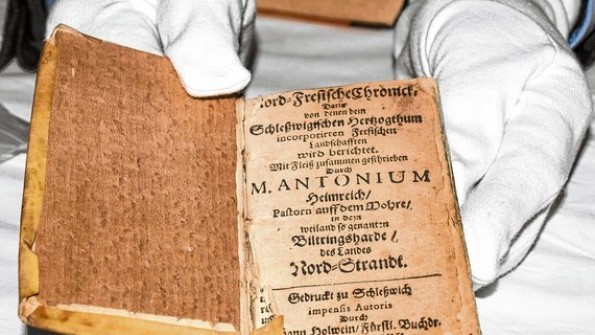 Nord-Fresische Chronick,
Darin
von denen dem
Schleßwigischen Hertzogthum
incorporirten Fresischen
Landschafften
wird berichtet.
Mit Fleiß zusammen geschrieben
Durch
M. ANTONIUM
Heimreich/
Pastorn auff dem Mohre/
in dem
weiland so genanten
Biltringsharde/
des Landes
Nord-Strandt.
Gedruckt zu Schleßwich
impensis Autoris
Durch
Holwein/Fürstl. Buchdr.